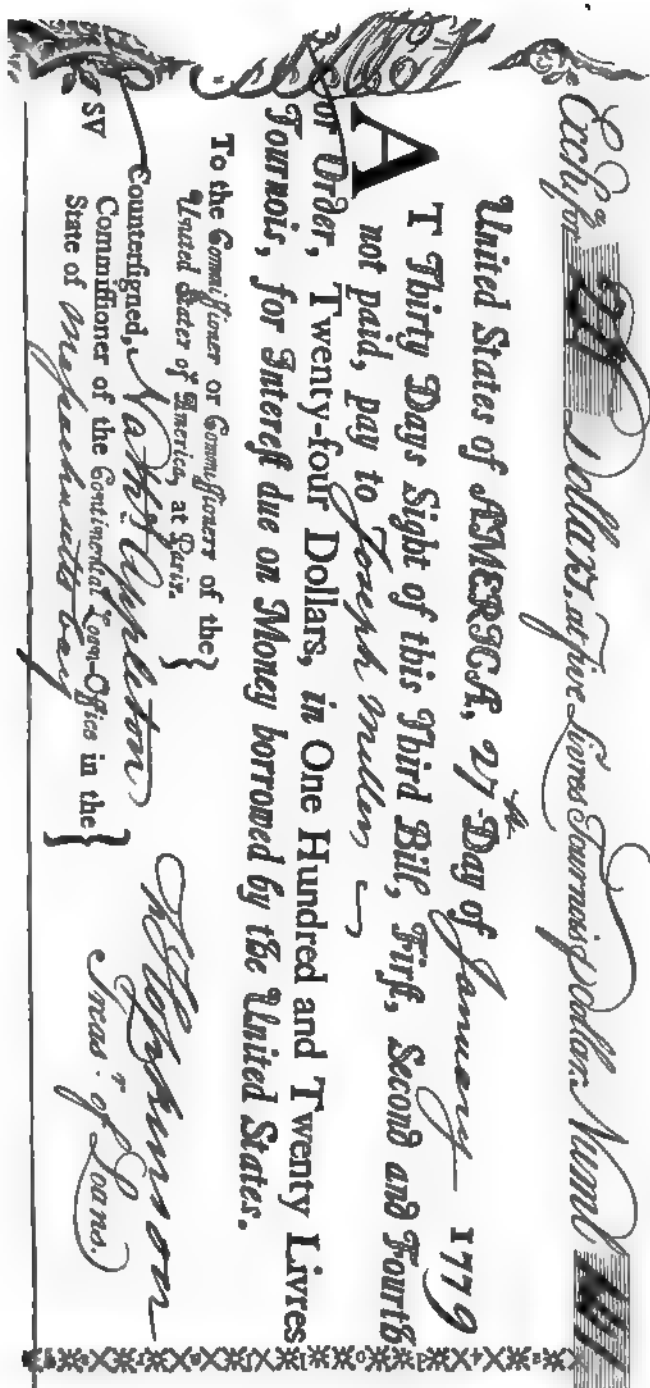 Exchᵃ for 24 Dollars, at five Livres Tournois ⅌ Dollar. Numb
United States of AMERICA, 27th Day of January 1779
AT Thirty Days Sight of this Third Bill, Firſt, Second and Fourth
not paid, pay to Joseph Miller
or Order, Twenty-four Dollars, in One Hundred and Twenty Livres
Tournois, for Intereſt due on Money borrowed by the United States.
To the Commiſſioner or Commiſſioners of the
United States of America, at Paris.
Counterſigned, Nathˡ Appleton
Commiſſioner of the Continental Loan-Office in the
State of Maſsachusetts bay
F Hopkinson
Treasʳ of Loans.